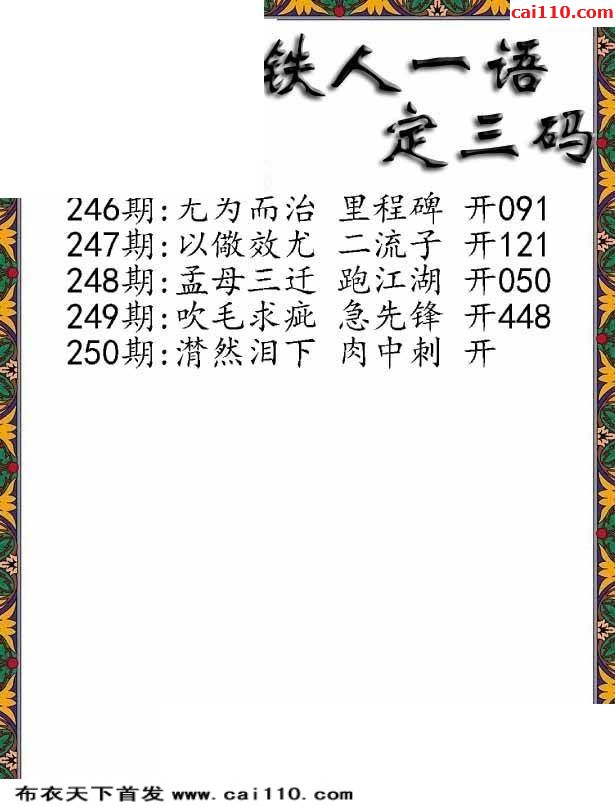 cai110.com
铁人一语
定三码
246期:无为而治 里程碑 开091
247期:以儆效尤 二流子 开121
248期:孟母三迁 跑江湖 开050
249期:吹毛求疵 急先锋 开448
250期:潸然泪下 肉中刺 开
布衣天下首发 www.cai110.com